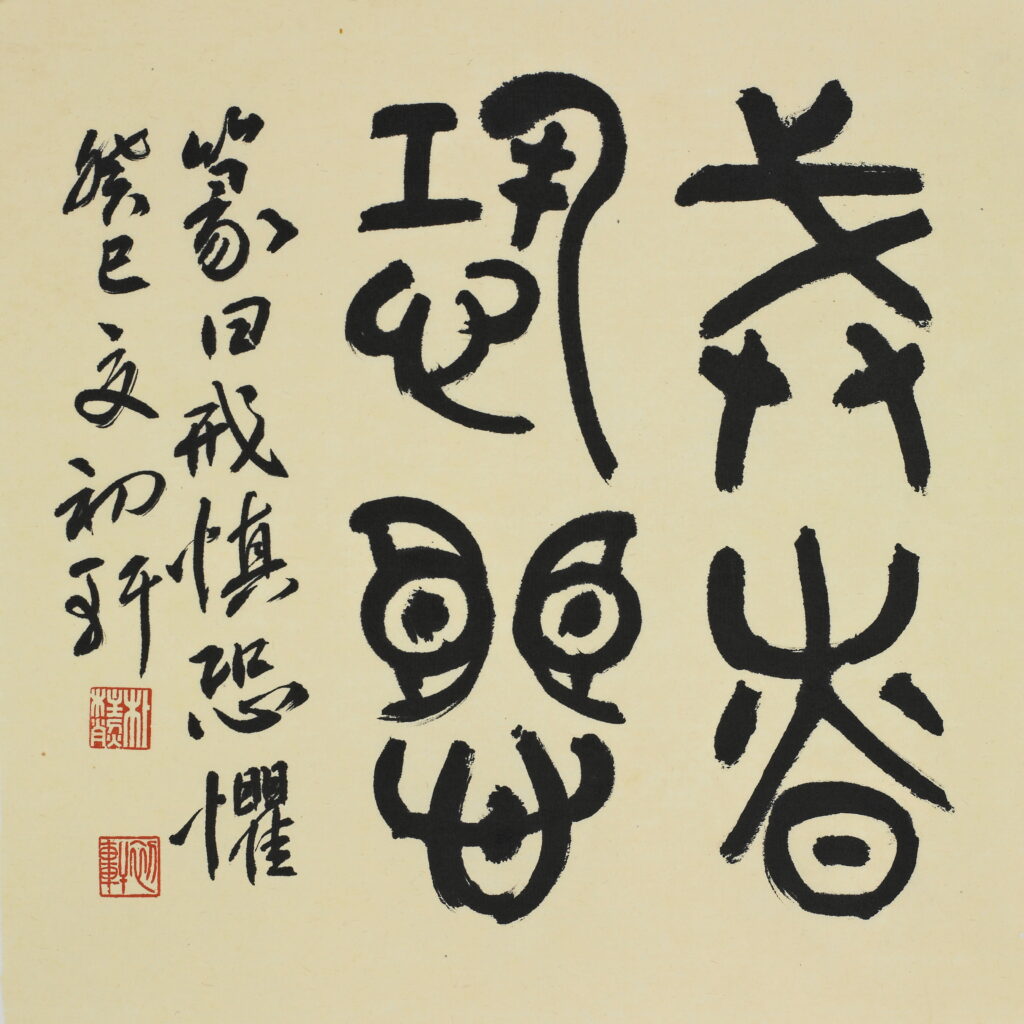 戒慎
恐懼
篆曰戒慎恐懼
癸巳夏初軒
初軒